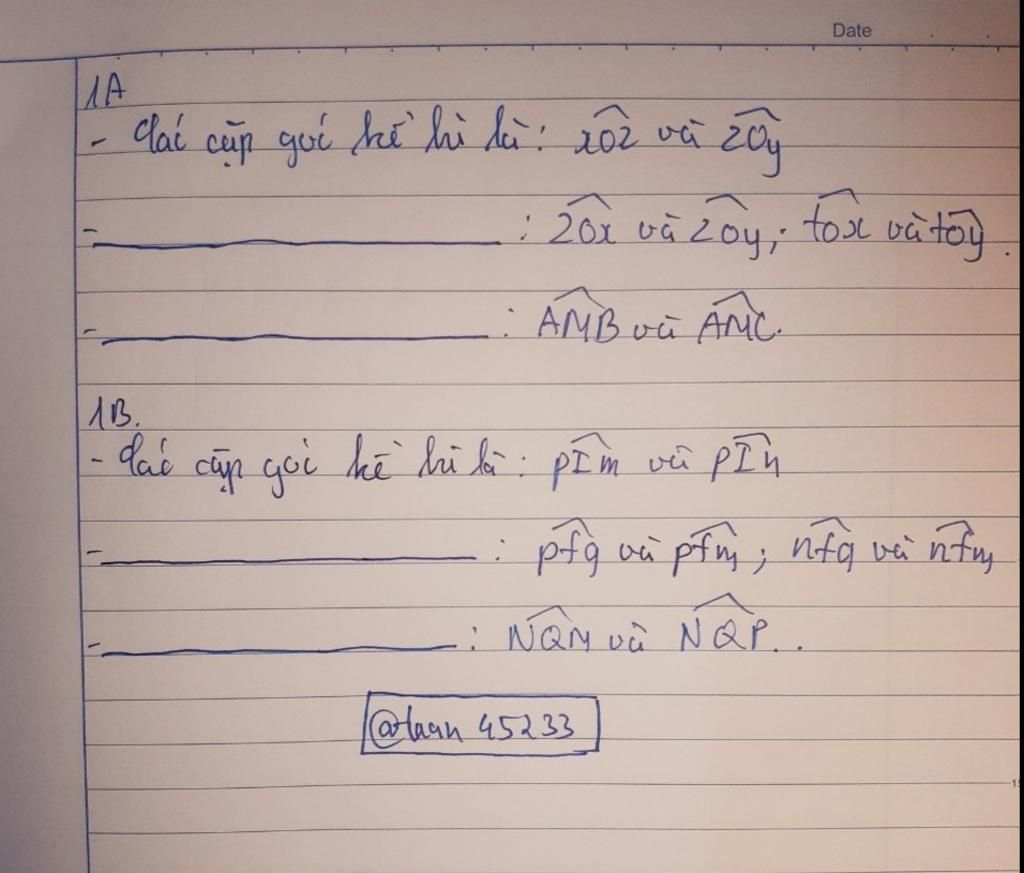 Date
1A
- Các cặp góc kề bù là: xOz và zOy
- : zOx và zOy; tOx và tOy.
- : AMB và AMC.
1B.
- Các cặp góc kề bù là: pIm và pIn
- : pfq và pfm; nfq và nfm
- : NQM và NQP..
45233